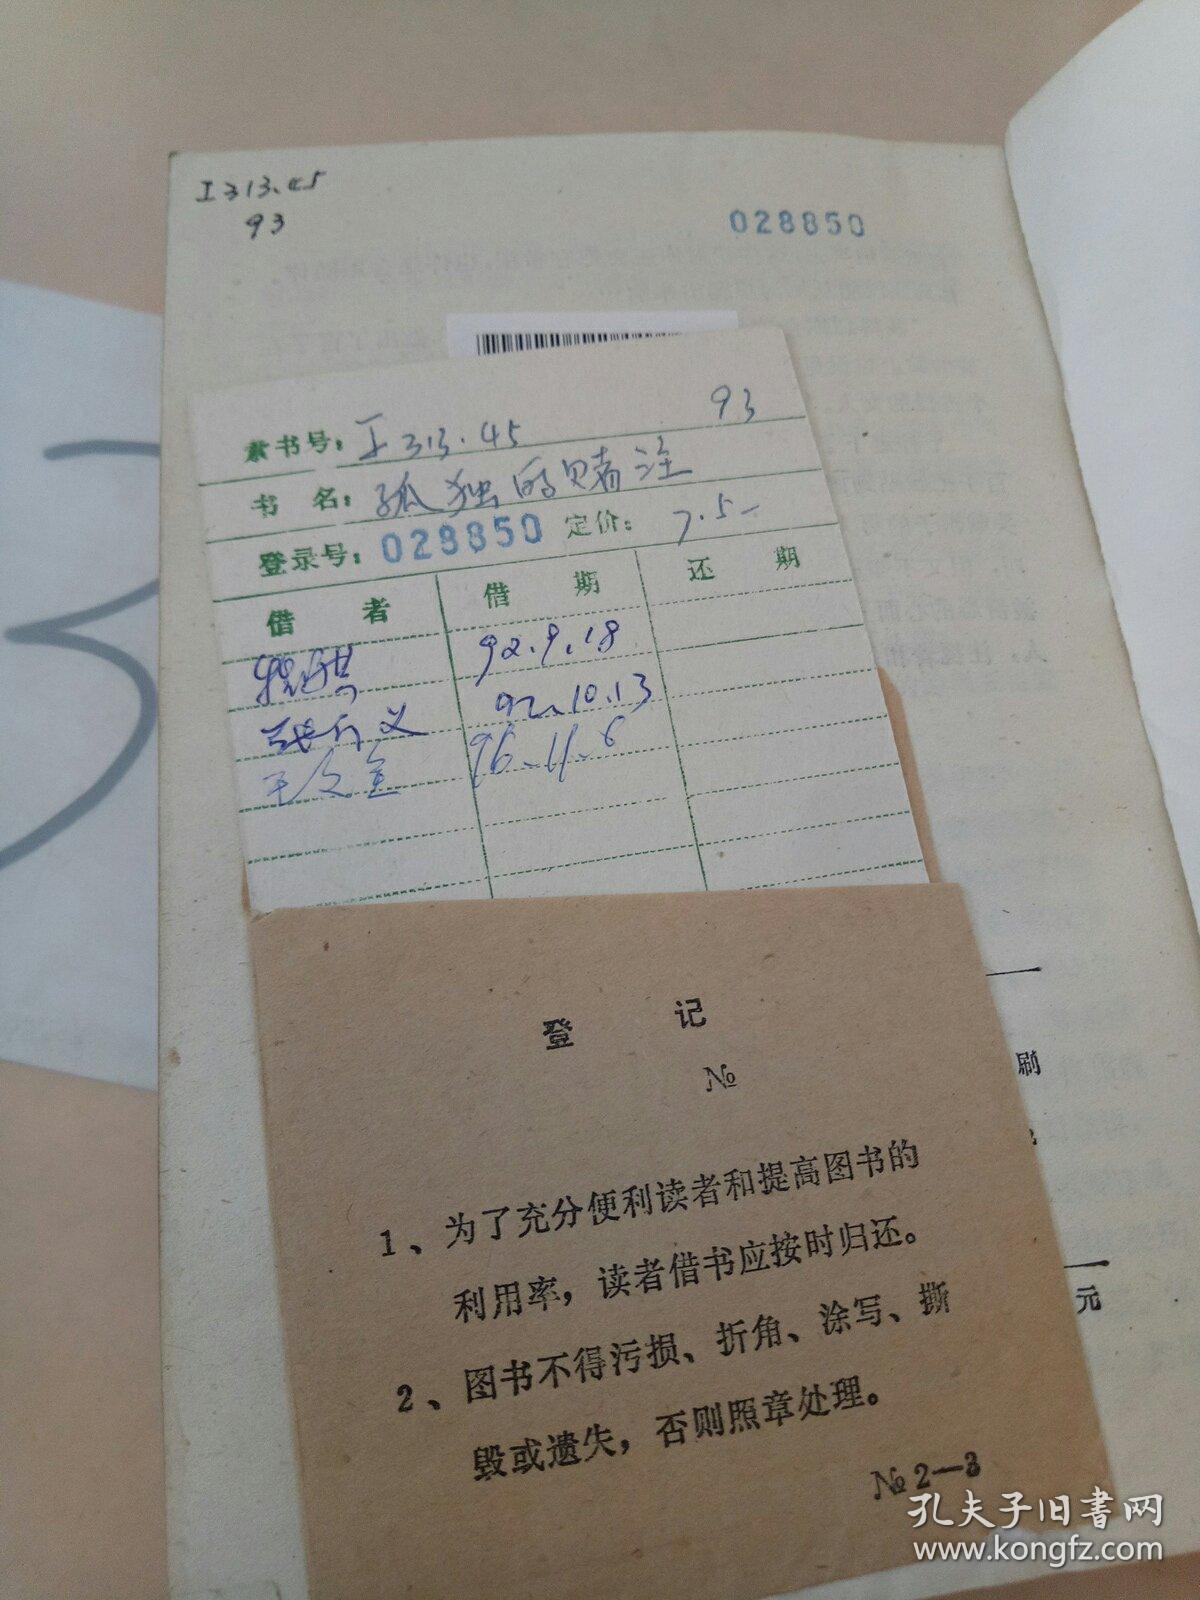 I313.45
93
028850
索书号：I313.45 93
书 名：孤独的赌注
登录号：028850 定价：7.5-
借 者 借 期 还 期
92.9.18
92.10.13
王文金 96.11.6
登 记
№
1、为了充分便利读者和提高图书的
利用率，读者借书应按时归还。
2、图书不得污损、折角、涂写、撕
毁或遗失，否则照章处理。
№ 2—3
刷
元
3
孔夫子旧书网
www.kongfz.com